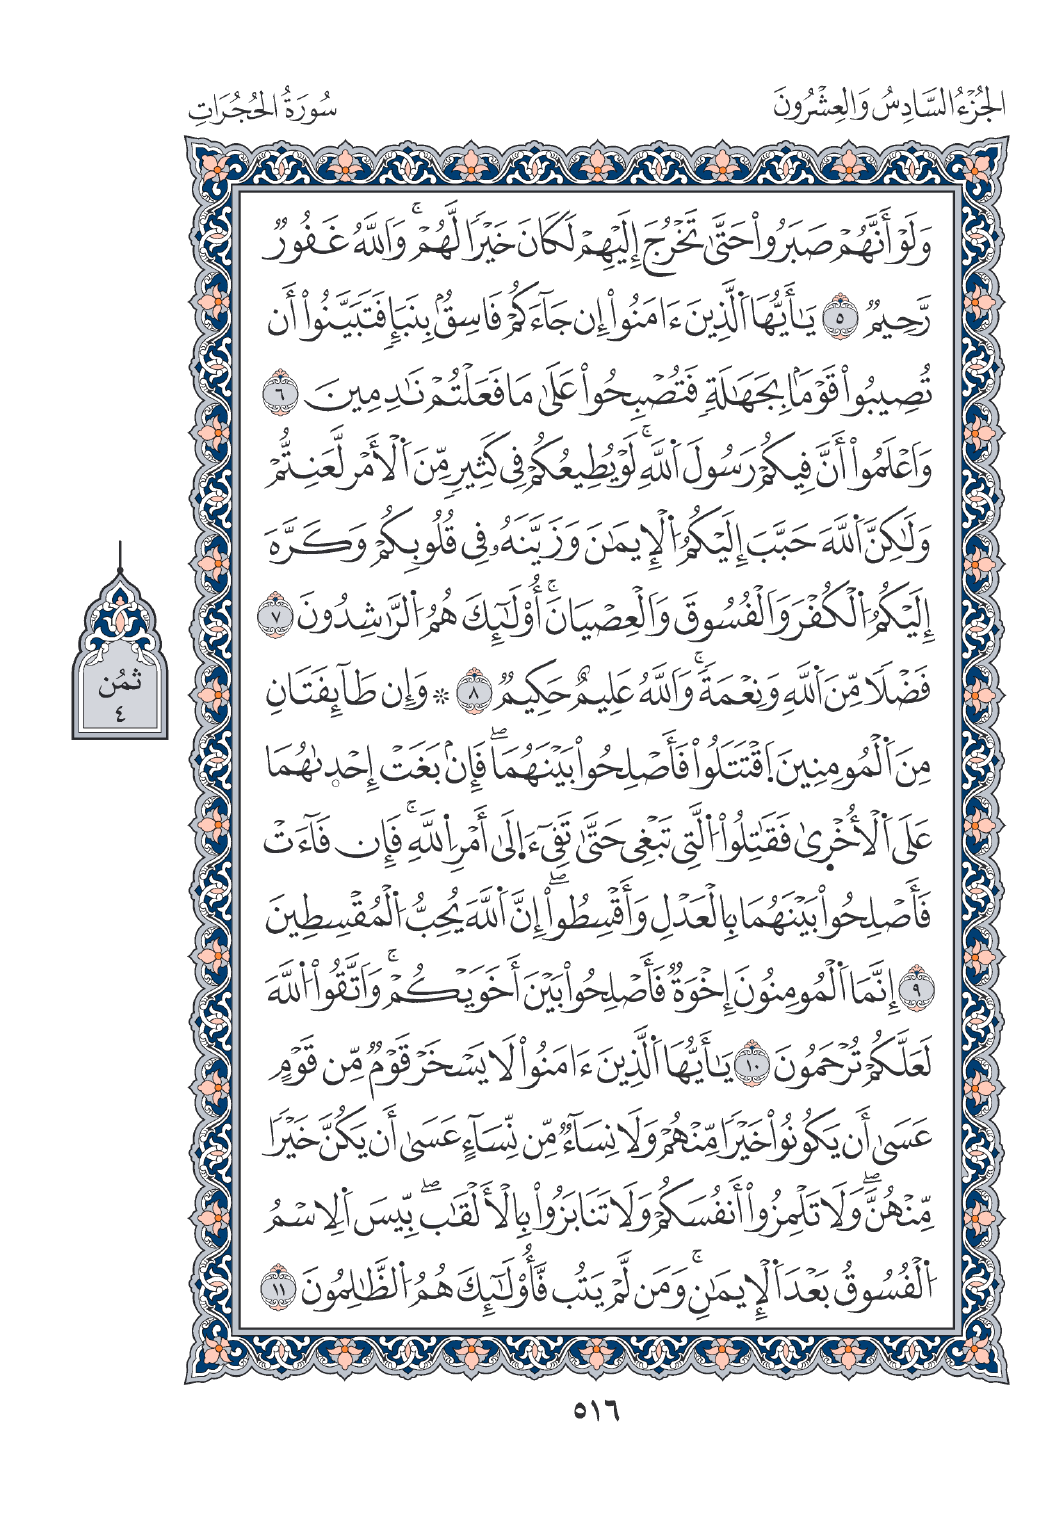 الجُزْءُ السَّادِسُ وَالعِشْرُونَ
سُورَةُ الحُجُرَاتِ
وَلَوْ أَنَّهُمْ صَبَرُواْ حَتَّىٰ تَخْرُجَ إِلَيْهِمْ لَكَانَ خَيْرٗا لَّهُمْۚ وَٱللَّهُ غَفُورٞ
رَّحِيمٞ ٥ يَٰأَيُّهَا ٱلَّذِينَ ءَامَنُواْ إِن جَآءَكُمْ فَاسِقُۢ بِنَبَإٖ فَتَبَيَّنُواْ أَن
تُصِيبُواْ قَوْمَۢا بِجَهَٰلَةٖ فَتُصْبِحُواْ عَلَىٰ مَا فَعَلْتُمْ نَٰدِمِينَ ٦
وَٱعْلَمُواْ أَنَّ فِيكُمْ رَسُولَ ٱللَّهِۚ لَوْ يُطِيعُكُمْ فِي كَثِيرٖ مِّنَ ٱلْأَمْرِ لَعَنِتُّمْ
وَلَٰكِنَّ ٱللَّهَ حَبَّبَ إِلَيْكُمُ ٱلْإِيمَٰنَ وَزَيَّنَهُۥ فِي قُلُوبِكُمْ وَكَرَّهَ
إِلَيْكُمُ ٱلْكُفْرَ وَٱلْفُسُوقَ وَٱلْعِصْيَانَۚ أُوْلَٰٓئِكَ هُمُ ٱلرَّٰشِدُونَ ٧
فَضْلٗا مِّنَ ٱللَّهِ وَنِعْمَةٗۚ وَٱللَّهُ عَلِيمٌ حَكِيمٞ ٨ ۞ وَإِن طَآئِفَتَانِ
مِنَ ٱلْمُومِنِينَ ٱقْتَتَلُواْ فَأَصْلِحُواْ بَيْنَهُمَاۖ فَإِنۢ بَغَتْ إِحْدَىٰهُمَا
عَلَى ٱلْأُخْرَىٰ فَقَٰتِلُواْ ٱلَّتِي تَبْغِي حَتَّىٰ تَفِيٓءَ اِ۪لَىٰ أَمْرِ ٱللَّهِۚ فَإِن فَآءَتْ
فَأَصْلِحُواْ بَيْنَهُمَا بِٱلْعَدْلِ وَأَقْسِطُواْۖ إِنَّ ٱللَّهَ يُحِبُّ ٱلْمُقْسِطِينَ
٩ إِنَّمَا ٱلْمُومِنُونَ إِخْوَةٞ فَأَصْلِحُواْ بَيْنَ أَخَوَيْكُمْۚ وَٱتَّقُواْ ٱللَّهَ
لَعَلَّكُمْ تُرْحَمُونَ ١٠ يَٰأَيُّهَا ٱلَّذِينَ ءَامَنُواْ لَا يَسْخَرْ قَوْمٞ مِّن قَوْمٍ
عَسَىٰ أَن يَكُونُواْ خَيْرٗا مِّنْهُمْ وَلَا نِسَآءٞ مِّن نِّسَآءٍ عَسَىٰ أَن يَكُنَّ خَيْرٗا
مِّنْهُنَّۖ وَلَا تَلْمِزُواْ أَنفُسَكُمْ وَلَا تَنَابَزُواْ بِٱلْأَلْقَٰبِۖ بِيسَ ٱلِاسْمُ
ٱلْفُسُوقُ بَعْدَ ٱلْإِيمَٰنِۚ وَمَن لَّمْ يَتُب فَّأُوْلَٰٓئِكَ هُمُ ٱلظَّٰلِمُونَ ١١
ثمُن
٤
٥١٦